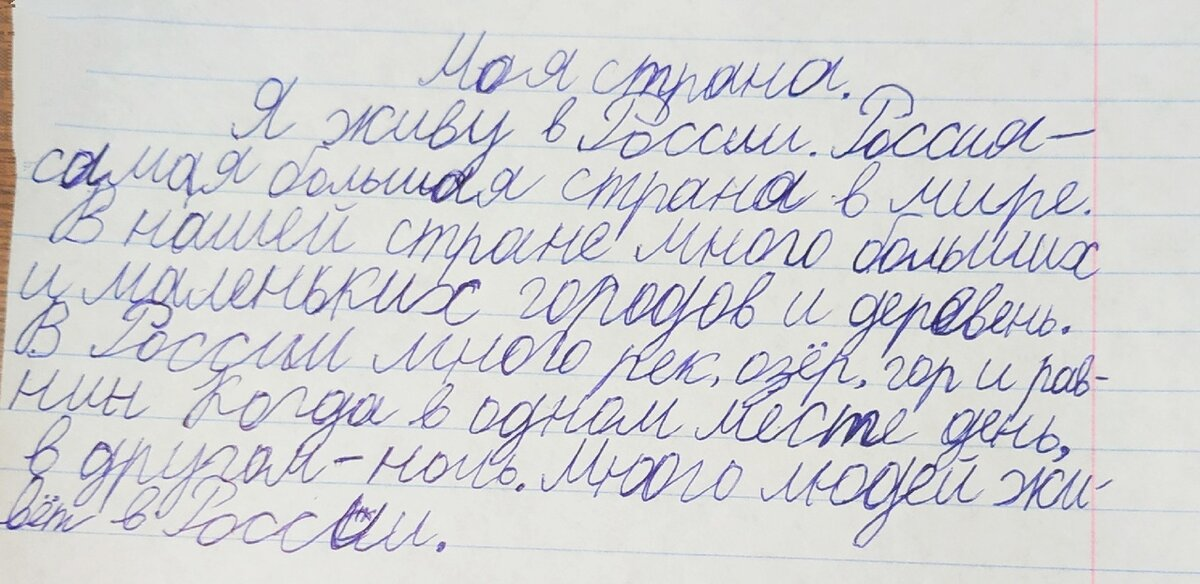 Моя страна.
Я живу в России. Россия —
самая большая страна в мире.
В нашей стране много больших
и маленьких городов и деревень.
В России много рек, озёр, гор и рав-
нин Когда в одном месте день,
в другом — ночь. Много людей жи-
вёт в России.